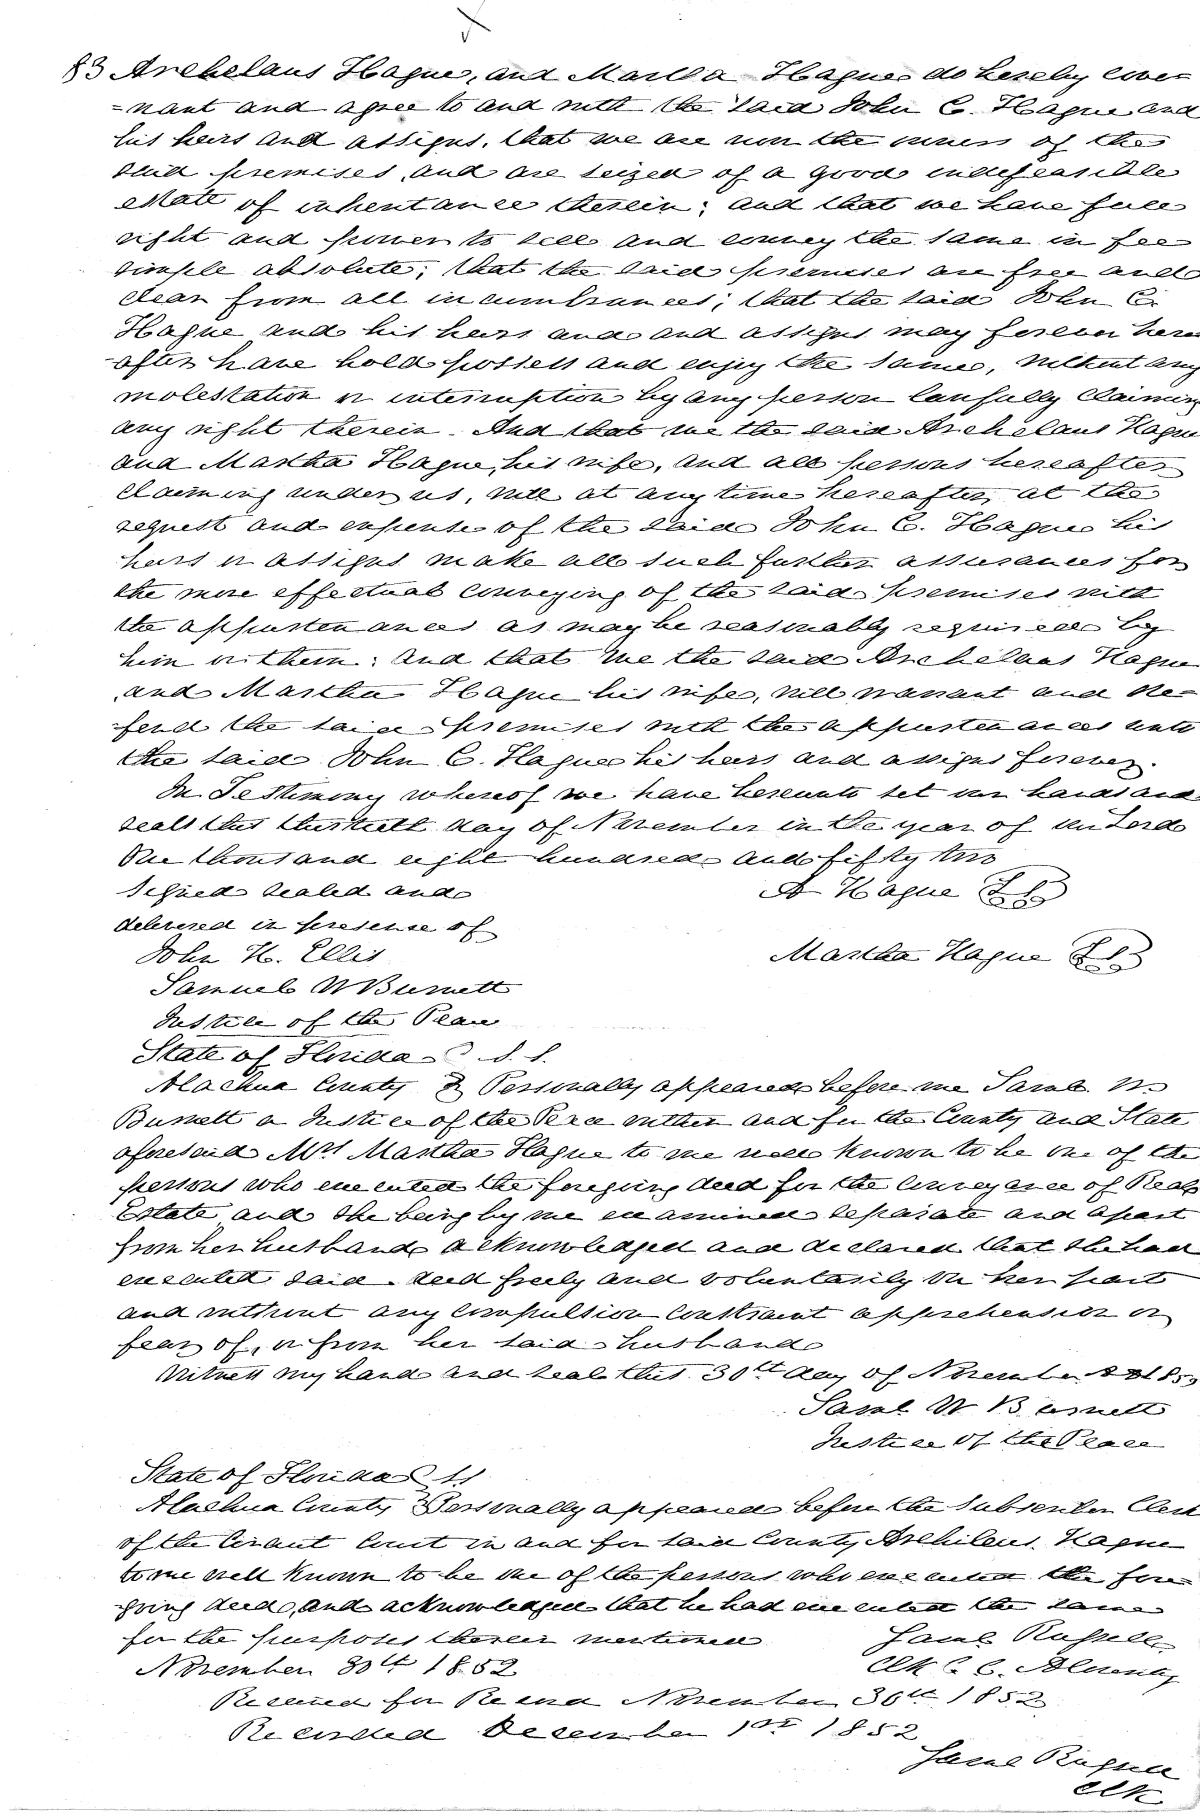 83 Archelaus Hague, and Martha Hague do hereby cove-
-nant and agree to and with the said John C. Hague and
his heirs and assigns, that we are now the owners of the
said premises, and are seized of a good indefeasible
estate of inheritance therein; and that we have full
right and power to sell and convey the same in fee
simple absolute; that the said premises are free and
clear from all incumbrances; that the said John C.
Hague and his heirs and and assigns may forever here
-after have hold possess and enjoy the same, without any
molestation or interruption by any person lawfully claiming
any right therein. And that we the said Archelaus Hague
and Martha Hague, his wife, and all persons hereafter
claiming under us, will at any time hereafter, at the
request and expense of the said John C. Hague his
heirs or assigns make all such further assurances for
the more effectual conveying of the said premises with
the appurtenances as may be reasonably required by
him or them; and that we the said Archelaus Hague
and Martha Hague his wife, will warrant and de-
fend the said premises with the appurtenances unto
the said John C. Hague his heirs and assigns forever.
In Testimony whereof we have hereunto set our hands and
seals this thirtieth day of November in the year of our Lord
One thousand eight hundred and fifty two
Signed sealed and A Hague LS
delivered in presence of
John H. Ellis Martha Hague LS
Samuel W Burnett
Justice of the Peace
State of Florida S. S.
Alachua County Personally appeared before me Saml. W.
Burnett a Justice of the Peace within and for the County and State
aforesaid Mrs Martha Hague to me well known to be one of the
persons who executed the foregoing deed for the conveyance of Real
Estate, and she being by me examined separate and apart
from her husband acknowledged and declared that she had
executed said deed freely and voluntarily on her part
and without any compulsion constraint apprehension or
fear of, or from her said husband
Witness my hand and seal this 30th day of November
Saml. W Burnett
Justice of the Peace
State of Florida SS
Alachua County Personally appeared before the Subscriber Clerk
of the Circuit Court in and for said County Archilaus Hague
to me well known to be one of the persons who executed the fore-
going deed, and acknowledged that he had executed the same
for the purposes therein mentioned Saml Russell
November 30th 1852 Clk C. C. A County
Received for Record November 30th 1852
Recorded December 1st 1852
Saml Russell
Clk